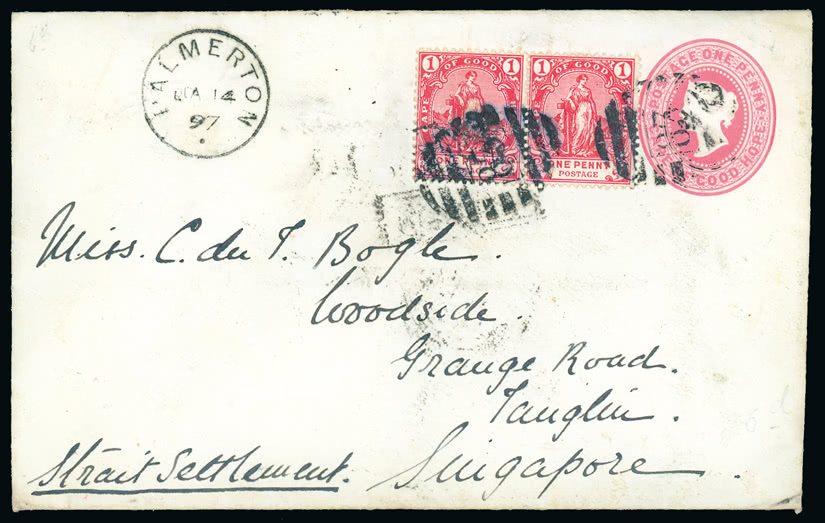 PALMERTON
14
97
1 OF GOOD 1
ONE PENNY
1 OF GOOD 1
ONE PENNY
POSTAGE
POSTAGE ONE PENNY
GOOD HOPE
Miss. C. du T. Bogle.
Woodside.
Grange Road.
Tanglin.
Singapore.
Strait Settlement.